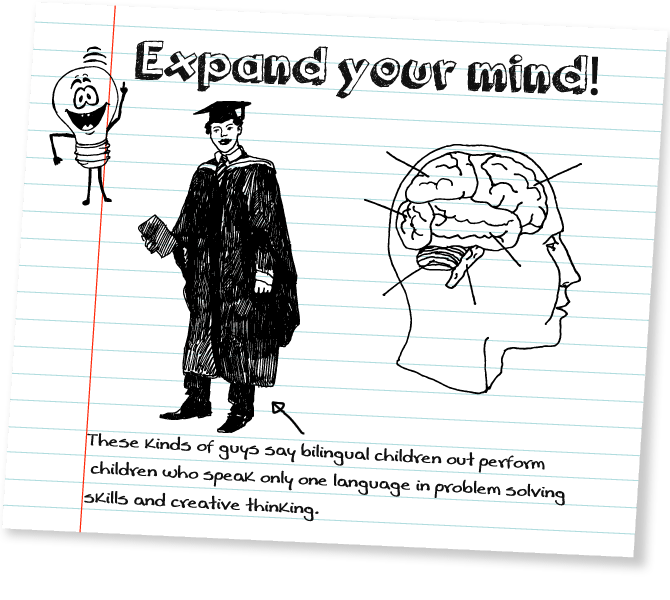 Expand your mind!
These kinds of guys say bilingual children out perform
children who speak only one language in problem solving
skills and creative thinking.